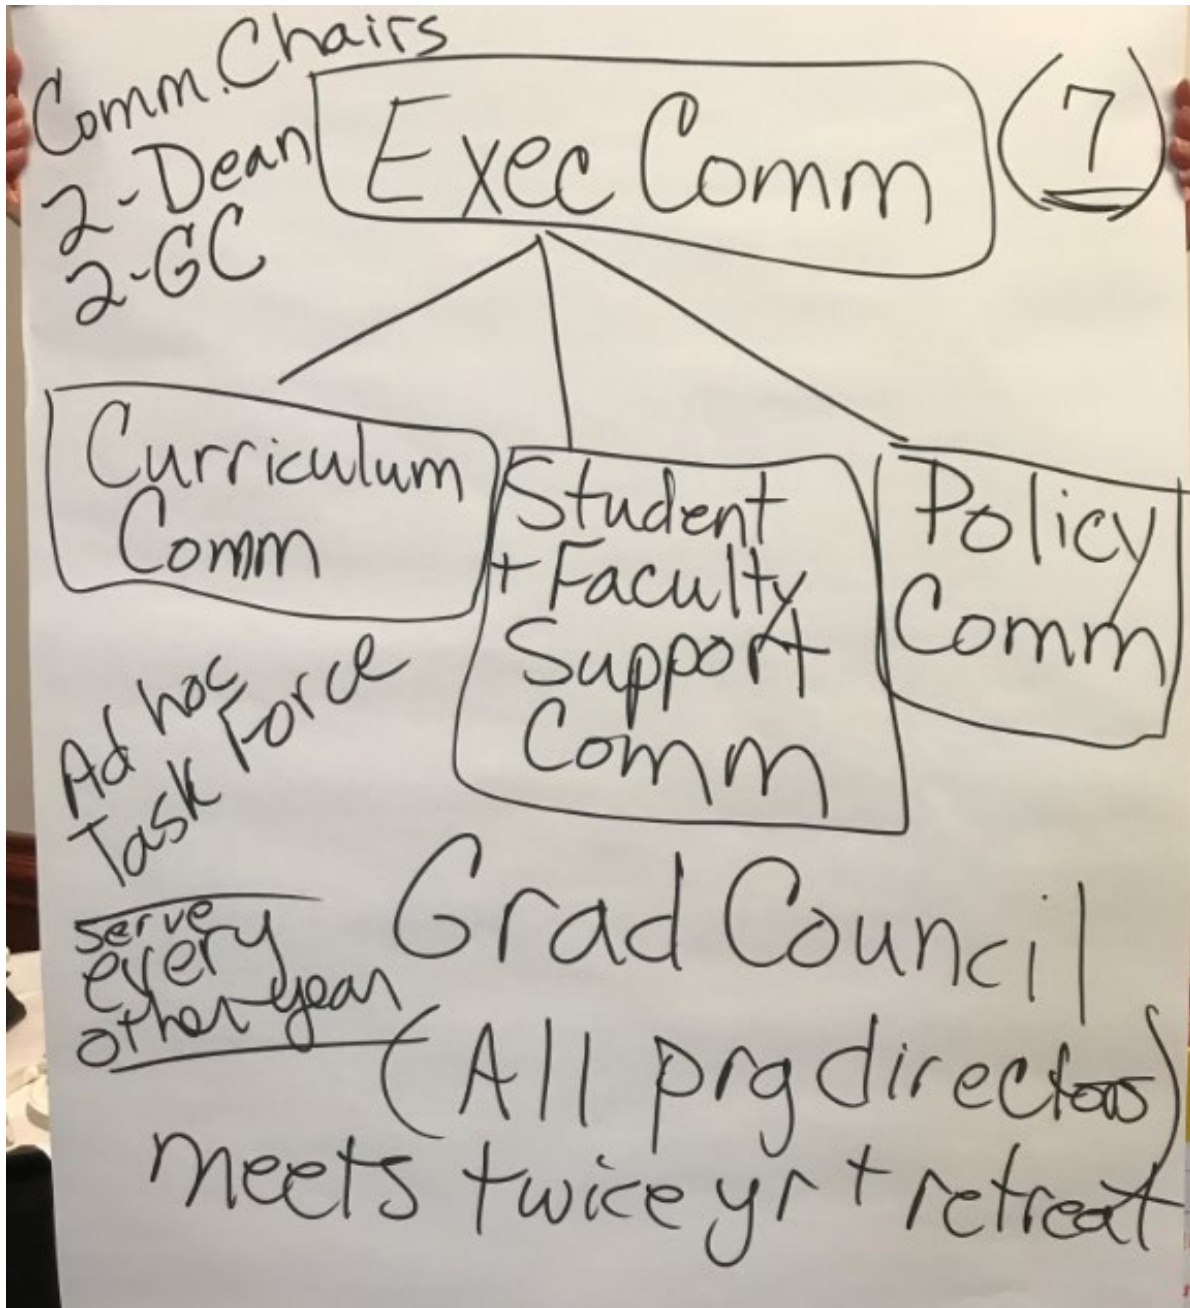 Comm. Chairs
2-Dean
2-GC
Exec Comm
(7)
Curriculum
Comm
Student
+ Faculty
Support
Comm
Policy
Comm
Ad hoc
Task Force
serve
every
other year
Grad Council
(All prg directors)
meets twice yr + retreat